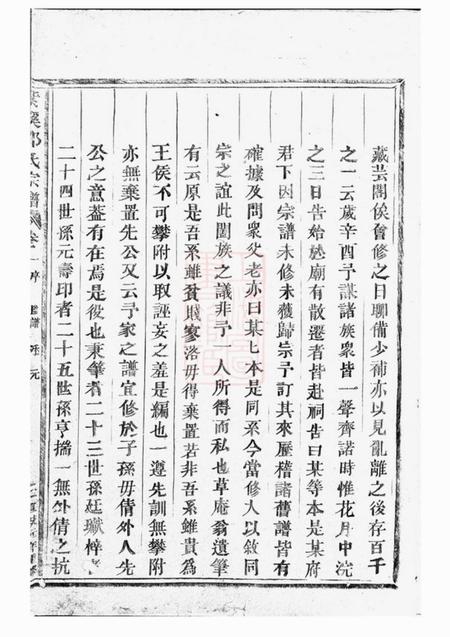 藏芸閣俟會修之日聊備少補亦以見亂離之後存百千
之一云歲辛酉予謀諸族衆皆一聲齊諾時惟花月中浣
之三日告始於廟有散遷者皆赴祠告曰某等本是某府
君下因宗譜未修未獲歸宗予訂其來歷稽諸舊譜皆有
確據及問衆父老亦曰某七本是同系今當修人以敘同
宗之誼此闔族之議非予一人所得而私也草庵翁遺筆
有云原是吾系雖貧賤寥落毋得棄置若非吾系雖貴為
王侯不可攀附以取誣妄之羞是編也一遵先訓無攀附
亦無棄置先公又云予家之譜宜修於子孫毋倩外人先
公之意蓋有在焉是役也秉筆者二十三世孫廷瓛梓者
二十四世孫元壽印者二十五世孫亨播一無外倩之抗
氏宗譜